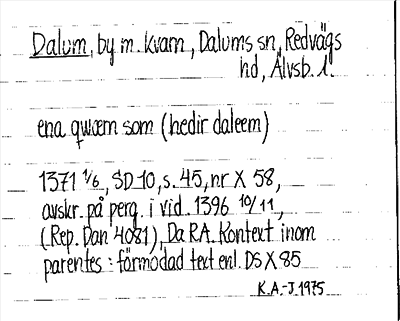 Dalum, by m. kvarn, Dalums sn, Redvägs
hd, Älvsb. l.
ena qwæm som (hedir daleem)
1371 1/6, SD 10, s. 45, nr X 58,
avskr. på perg. i vid. 1396 10/11,
(Rep. Dan 4081), Da RA. Kontext inom
parentes: förmodad text enl. DS X 85
K.A.-J 1975